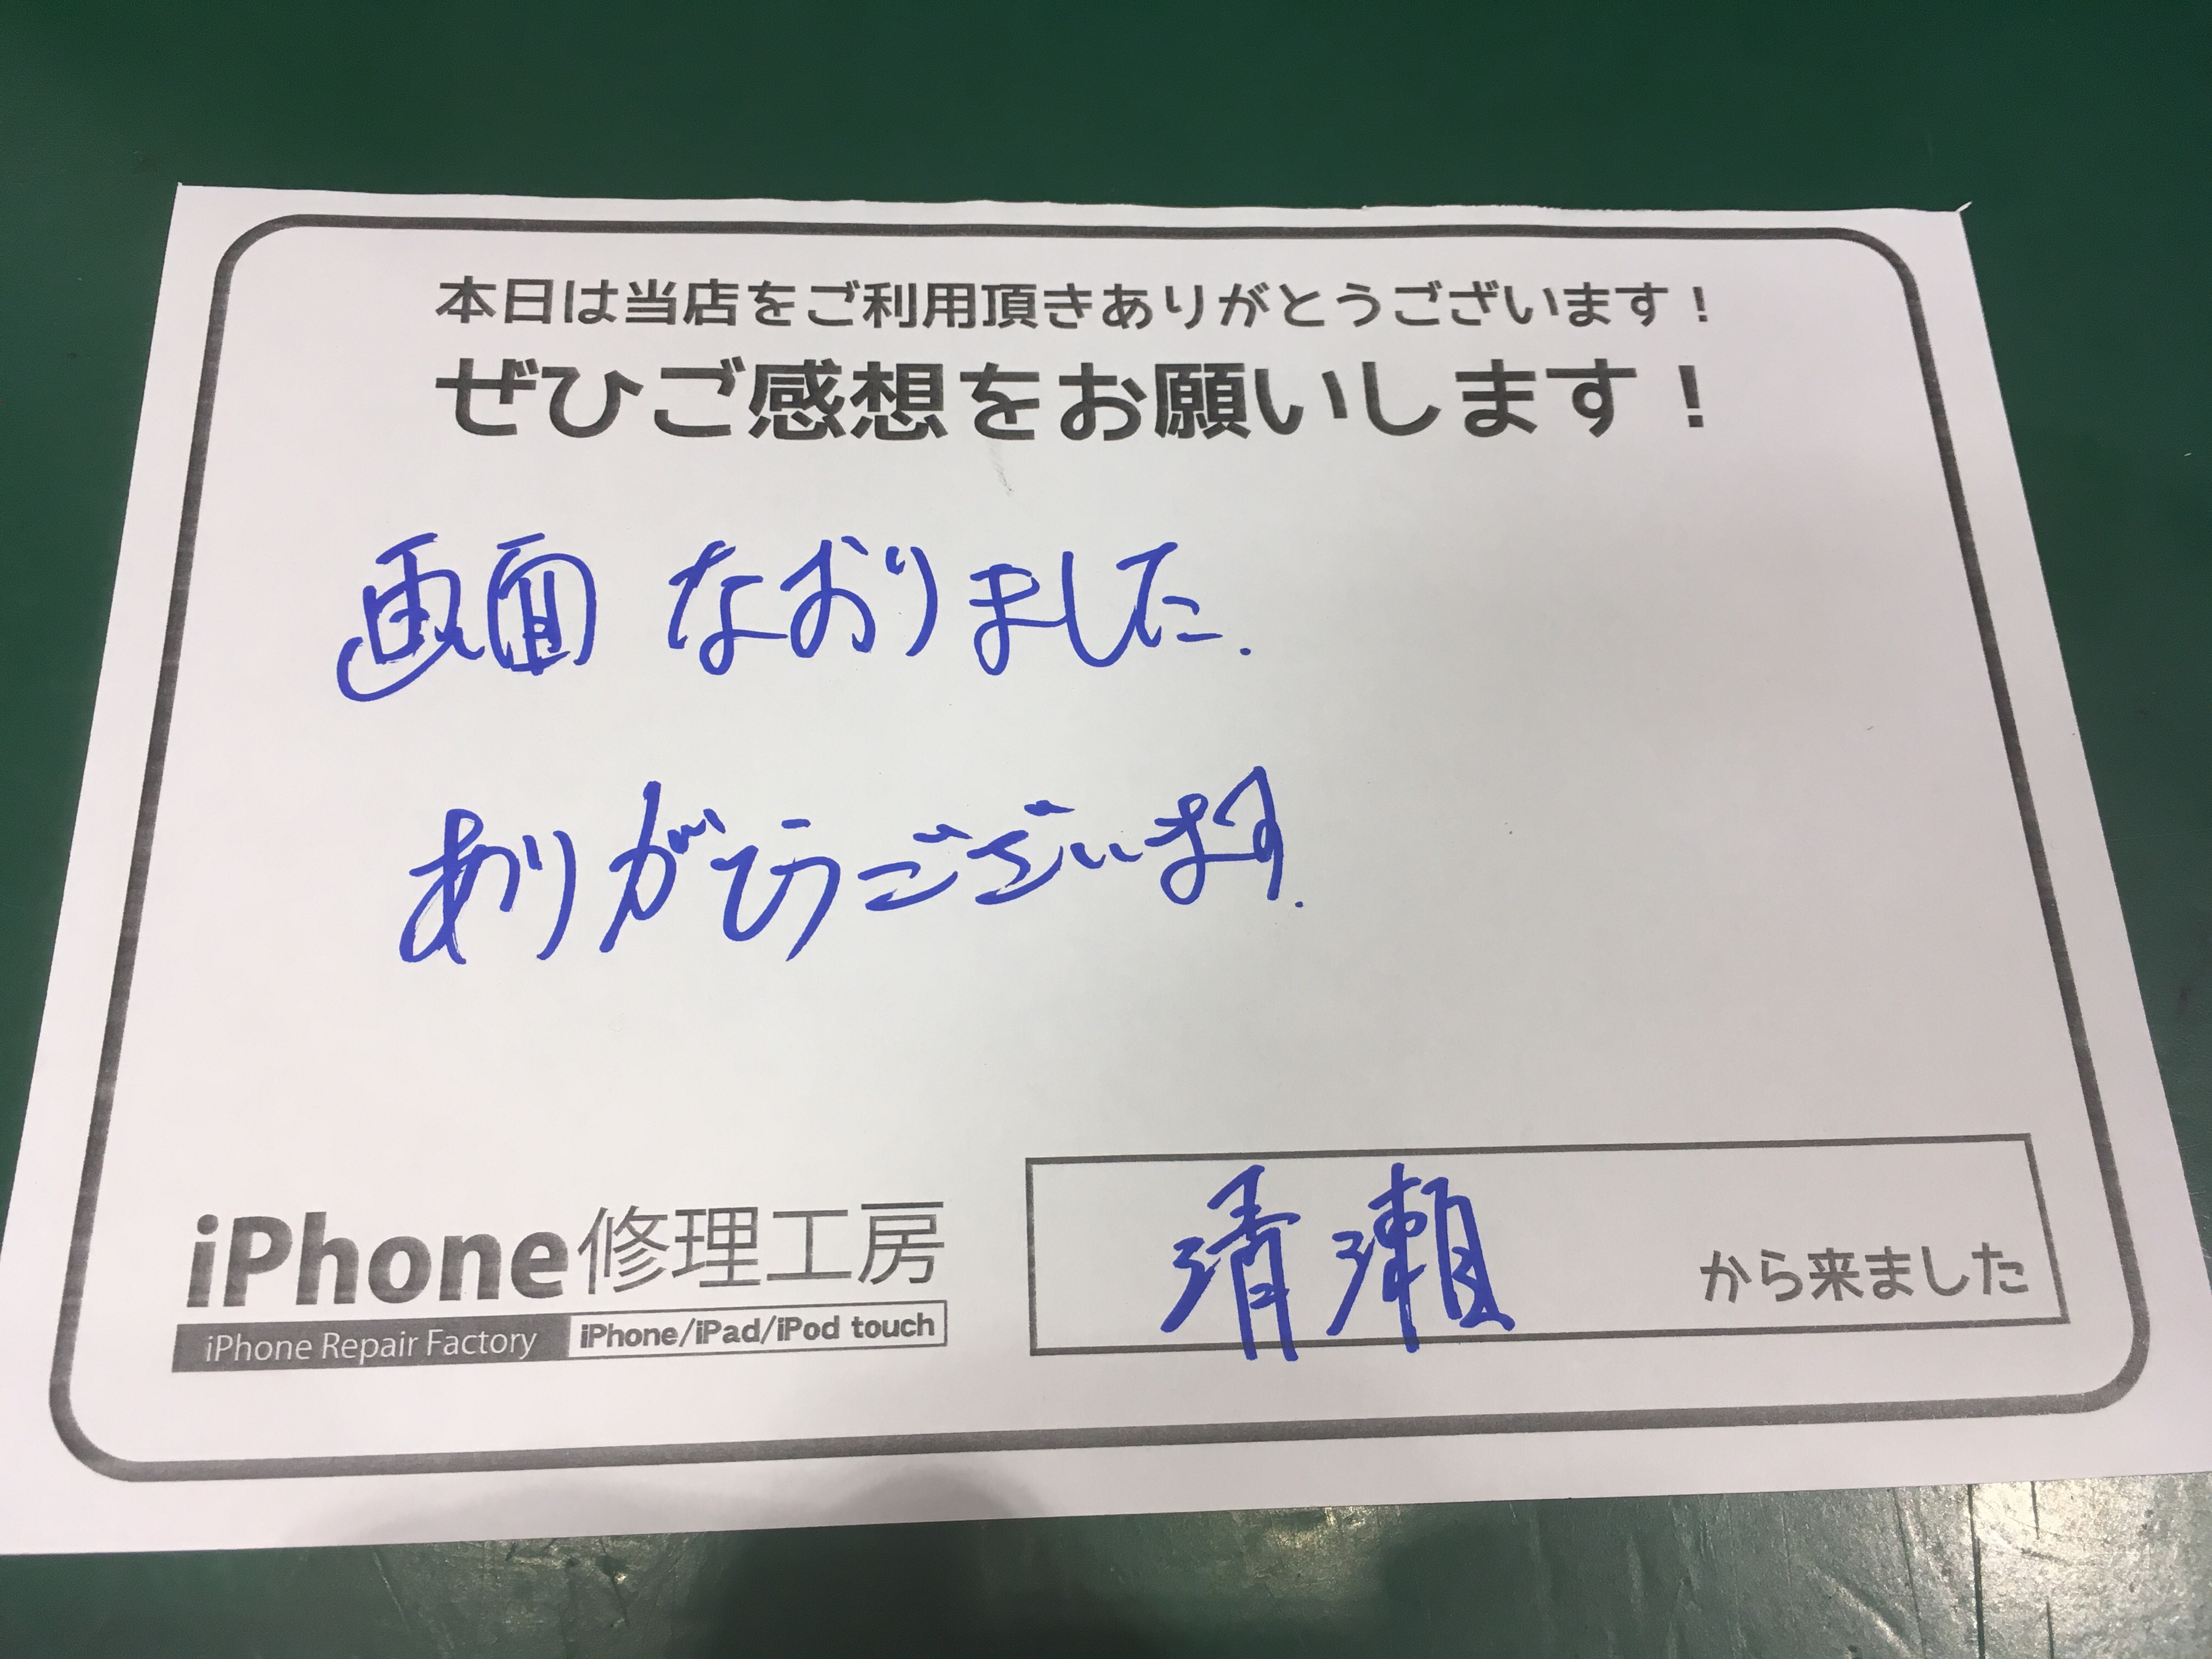 本日は当店をご利用頂きありがとうございます！
ぜひご感想をお願いします！
画面 なおりました.
ありがとうございます.
iPhone修理工房
iPhone Repair Factory iPhone/iPad/iPod touch
清瀬 から来ました